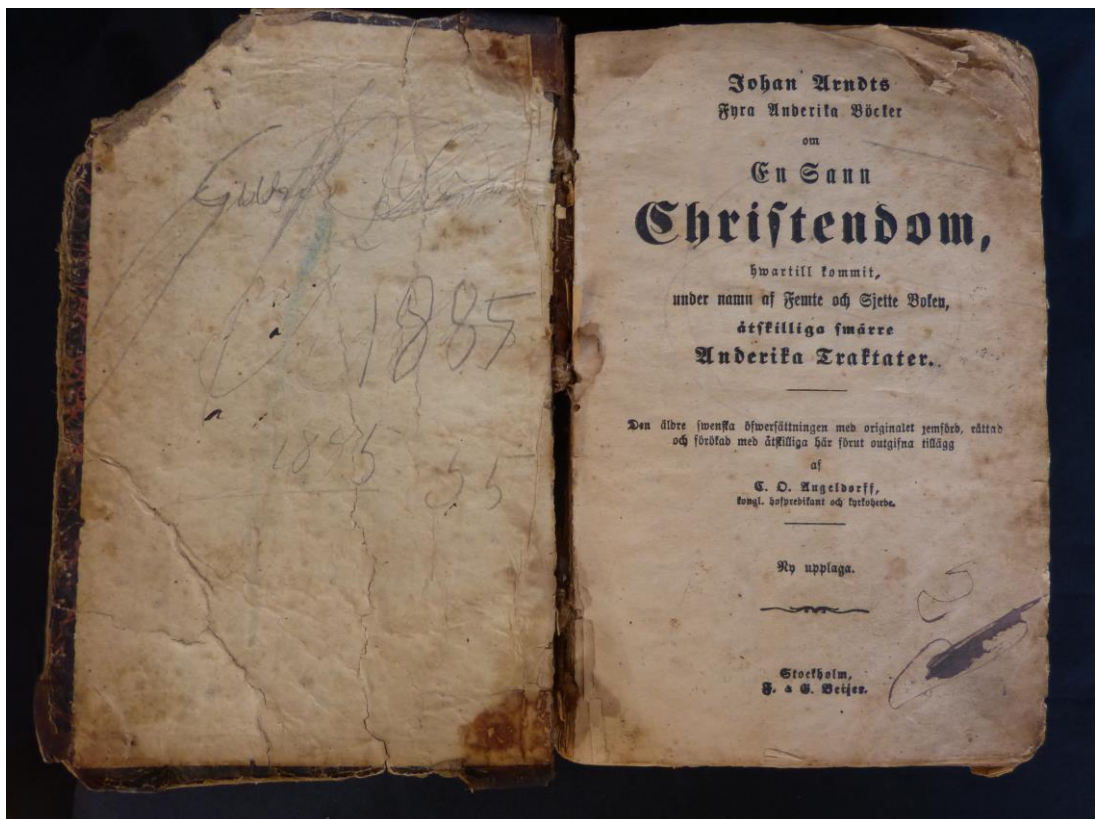 1885
1895 55
Johan Arndts
Fyra Anderika Böcker
om
En Sann
Christendom,
hwartill kommit,
under namn af Femte och Sjette Boken,
åtskilliga smärre
Anderika Traktater.
Den äldre swenska öfwersättningen med originalet jemförd, rättad
och förökad med åtskilliga här förut outgifna tillägg
af
C. O. Angeldorff,
kongl. hofpredikant och kyrkoherde.
Ny upplaga.
Stockholm,
F. & G. Beijer.